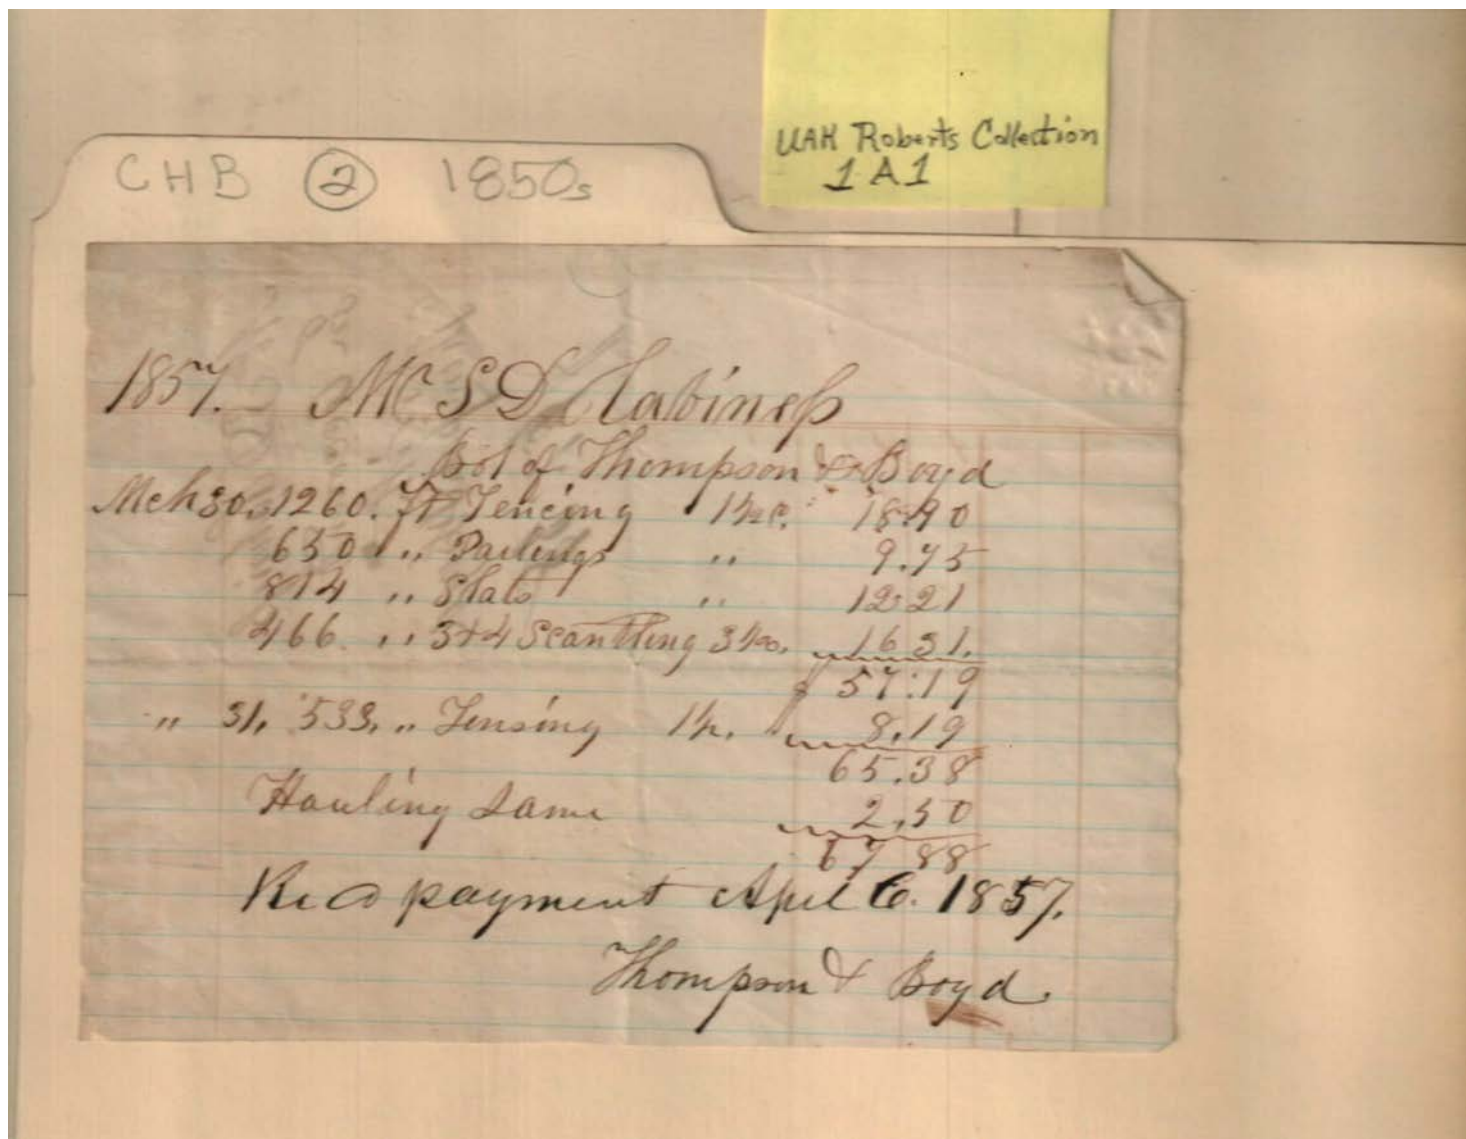 UAH Roberts Collection
1A1
CHB ② 1850s
1857. Mr S D Cabiness
Bot of Thompson & Boyd
Mch 30. 1260. Ft Fencing 1½c. 18.90
650 " Pailings " 9.75
814 " Slats " 12.21
466. " 3x4 Scantling 3½c. 16 31.
$ 57.19
" 31. 533. " Fensing 1½. 8.19
65.38
Hauling Same 2.50
67 88
Recd payment Apl 6. 1857.
Thompson & Boyd.